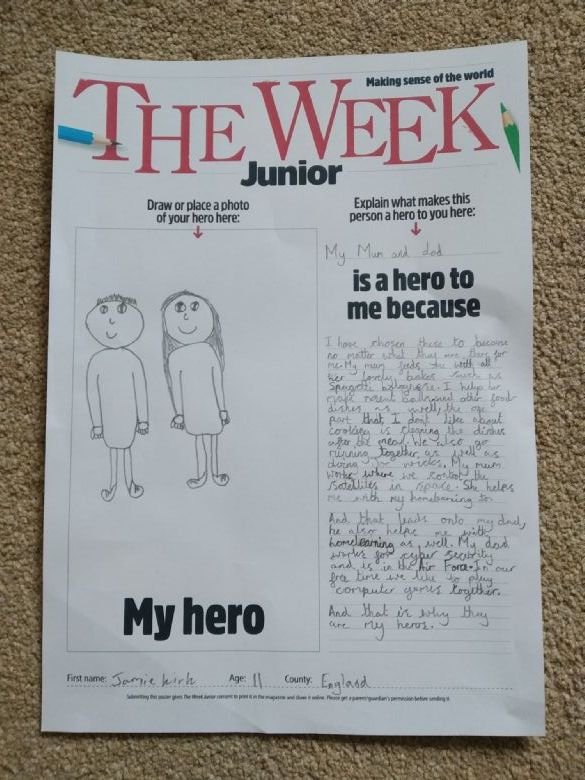 Making sense of the world
THE WEEK
Junior
Draw or place a photo
of your hero here:
Explain what makes this
person a hero to you here:
My Mum and dad
is a hero to
me because
I have chosen these to because
no matter what they are there for
me. My mum feeds me with all
her lovely bakes such as
Spagetti bolognese. I help her
make and other food
dishes as well, the one
part that, I dont like about
cooking is cleaning the dishes
after the meal. We also go
running together as well as
doing Jo wicks. My mum
works where we control the
satellites in space. She helps
me with my homelearning to.
And that leads onto my dad,
he also helps me with
homelearning as well. My dad
works for cyber security
and is in the Air Force. In our
free time we like to play
computer games together.
And that is why they
are my heros.
My hero
First name: Jamie Kirk Age: 11 County: England
Submitting this poster gives The Week Junior consent to print it in the magazine and share it online. Please get a parent/guardian's permission before sending it.